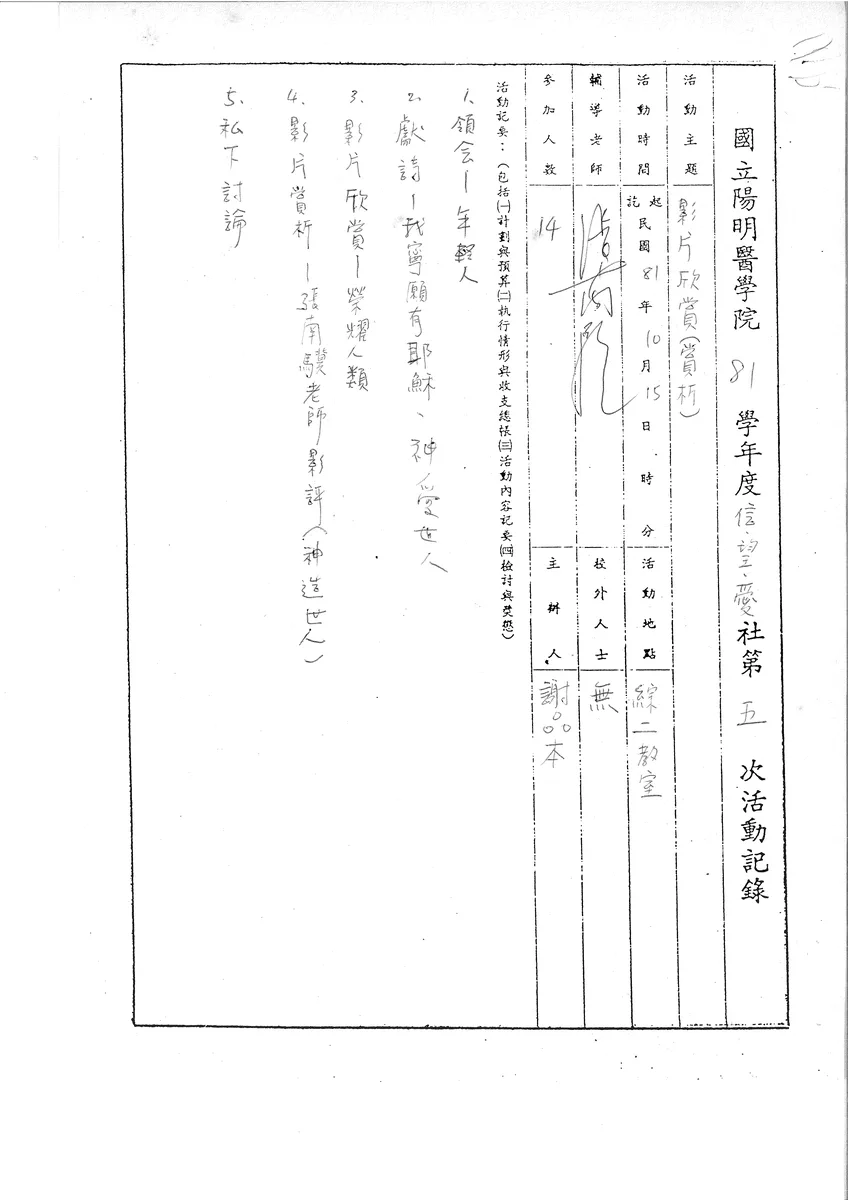 國立陽明醫學院 81 學年度信.望.愛社第 五 次活動記錄
活動主題 影片欣賞(賞析)
活動時間 起訖 民國 81 年 10 月 15 日 時 分 活動地點 綜二教室
輔導老師 校外人士 無
參加人數 14 主辦人 謝品本
活動記要:(包括㈠計劃與預算㈡執行情形與收支總帳㈢活動內容記要㈣檢討與獎懲)
1、領会—年輕人
2、獻詩—我寧願有耶穌、神愛世人
3、影片欣賞—榮耀人類
4、影片賞析—張南驥老師影評(神造世人)
5、私下討論